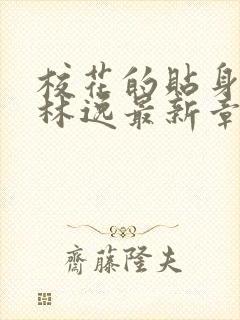 校花的貼身
林逸最新章
齋藤隆夫